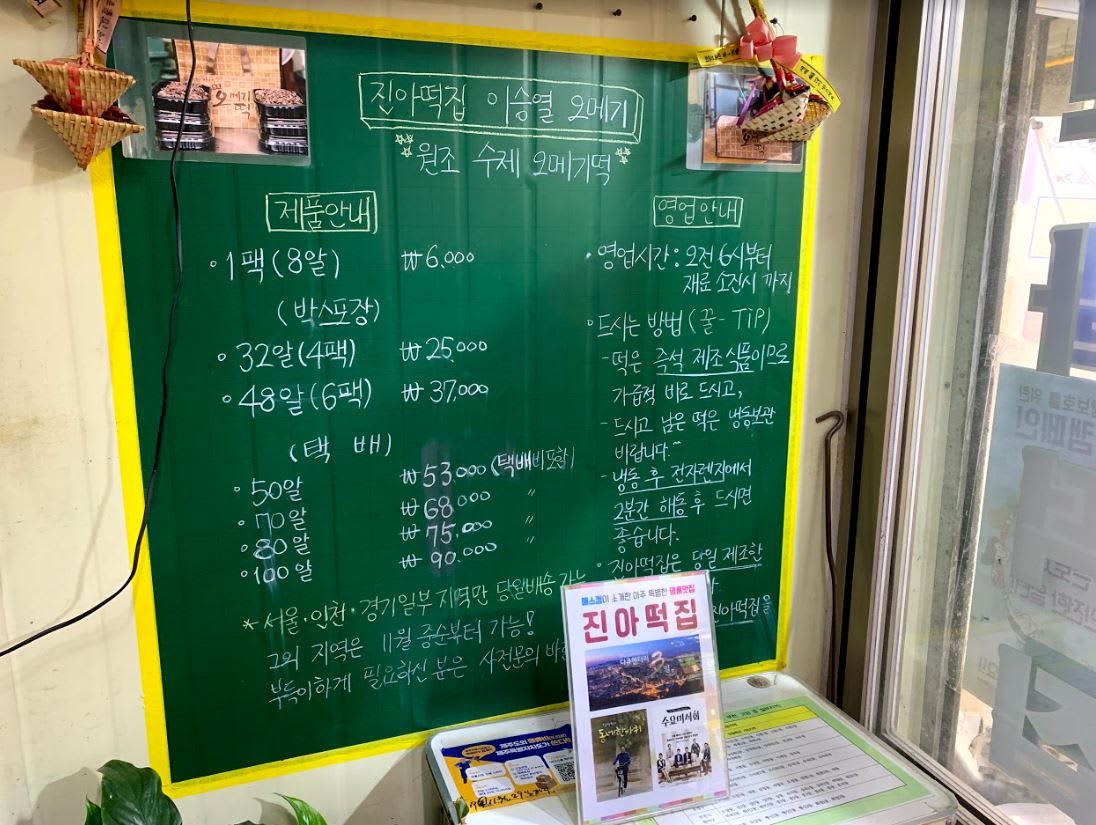 진아떡집 이승열 오메기
원조 수제 오메기떡
제품안내
· 1팩(8알) ₩6.000
(박스포장)
· 32알(4팩) ₩25.000
· 48알(6팩) ₩37.000
(택 배)
· 50알 ₩53.000 (택배비포함)
· 70알 ₩68.000 〃
· 80알 ₩75.000 〃
· 100알 ₩90.000
* 서울·인천·경기일부 지역만 당일배송 가능
그외 지역은 11월 중순부터 가능!
부득이하게 필요하신 분은 사전문의 바
영업안내
· 영업시간 : 오전 6시부터
재료 소진시 까지
· 드시는 방법 (꿀-TiP)
- 떡은 즉석 제조식품이므로
가급적 바로 드시고,
- 드시고 남은 떡은 냉동보관
바랍니다.^^
- 냉동 후 전자렌지에서
2분간 해동 후 드시면
좋습니다.
· 진아떡집은 당일 제조한
진아떡집을
매스컴이 소개한 아주 특별한 명품맛집
진아떡집
다큐멘터리 3일
동네한바퀴
수요미식회